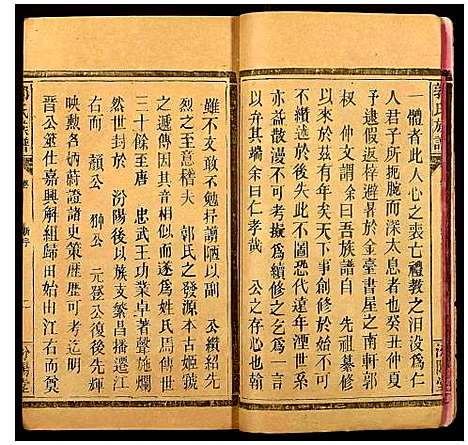 郭氏族譜
汾陽堂
一體者此人心之喪亡禮教之汨没為仁
人君子所扼腕而深太息者也癸丑仲夏
予逮假返梓避暑於金臺書屋之南軒郭
权仲文謂余曰吾族譜自 先祖纂修
於今以至於茲有年矣天下事創修於始
不纘述於後此不圖恐代遠年湮世系
亦益散漫不可考擬為續修之乞為一言
以弁其端余曰仁孝哉 公之存心也
雖不文敢不勉抒謭陋以副 公纘紹先
烈之至意稽夫 郭氏之發源本古姬虢
之遞傳因其音相似而遂為姓氏周傳世
三十餘至唐 忠武王功業卓著聲施爛
然世封於 汾陽後以族支繁昌播遷江
右而 顏公 翀公 元登公復後先輝
映勲名炳蔚證諸史策歷歷可考迄明
晉公筮仕嘉興解組歸田始由江右而奠
郭氏族譜
汾陽堂